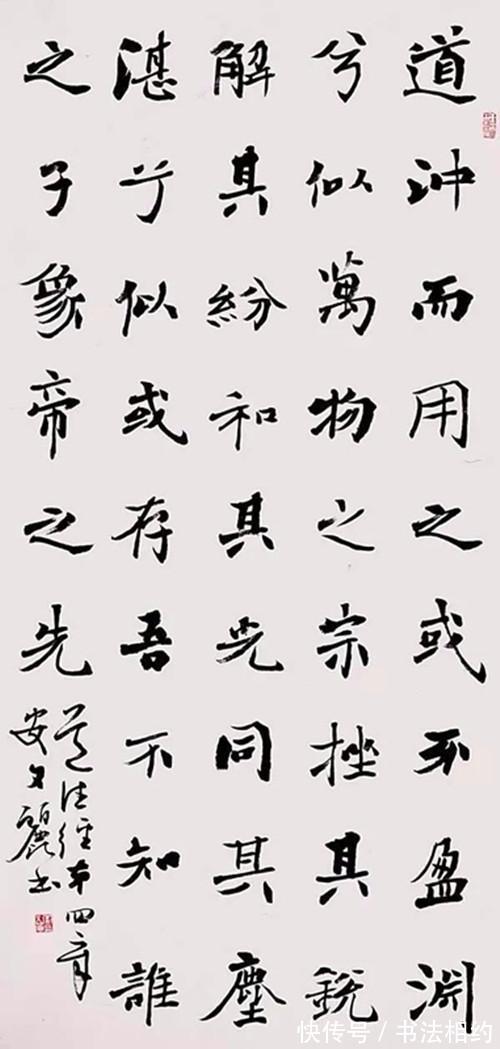 道沖而用之或不盈淵
兮似萬物之宗挫其銳
解其紛和其光同其塵
湛兮似或存吾不知誰
之子象帝之先
道德經第四章
安文麗书
快传号 / 书法相约